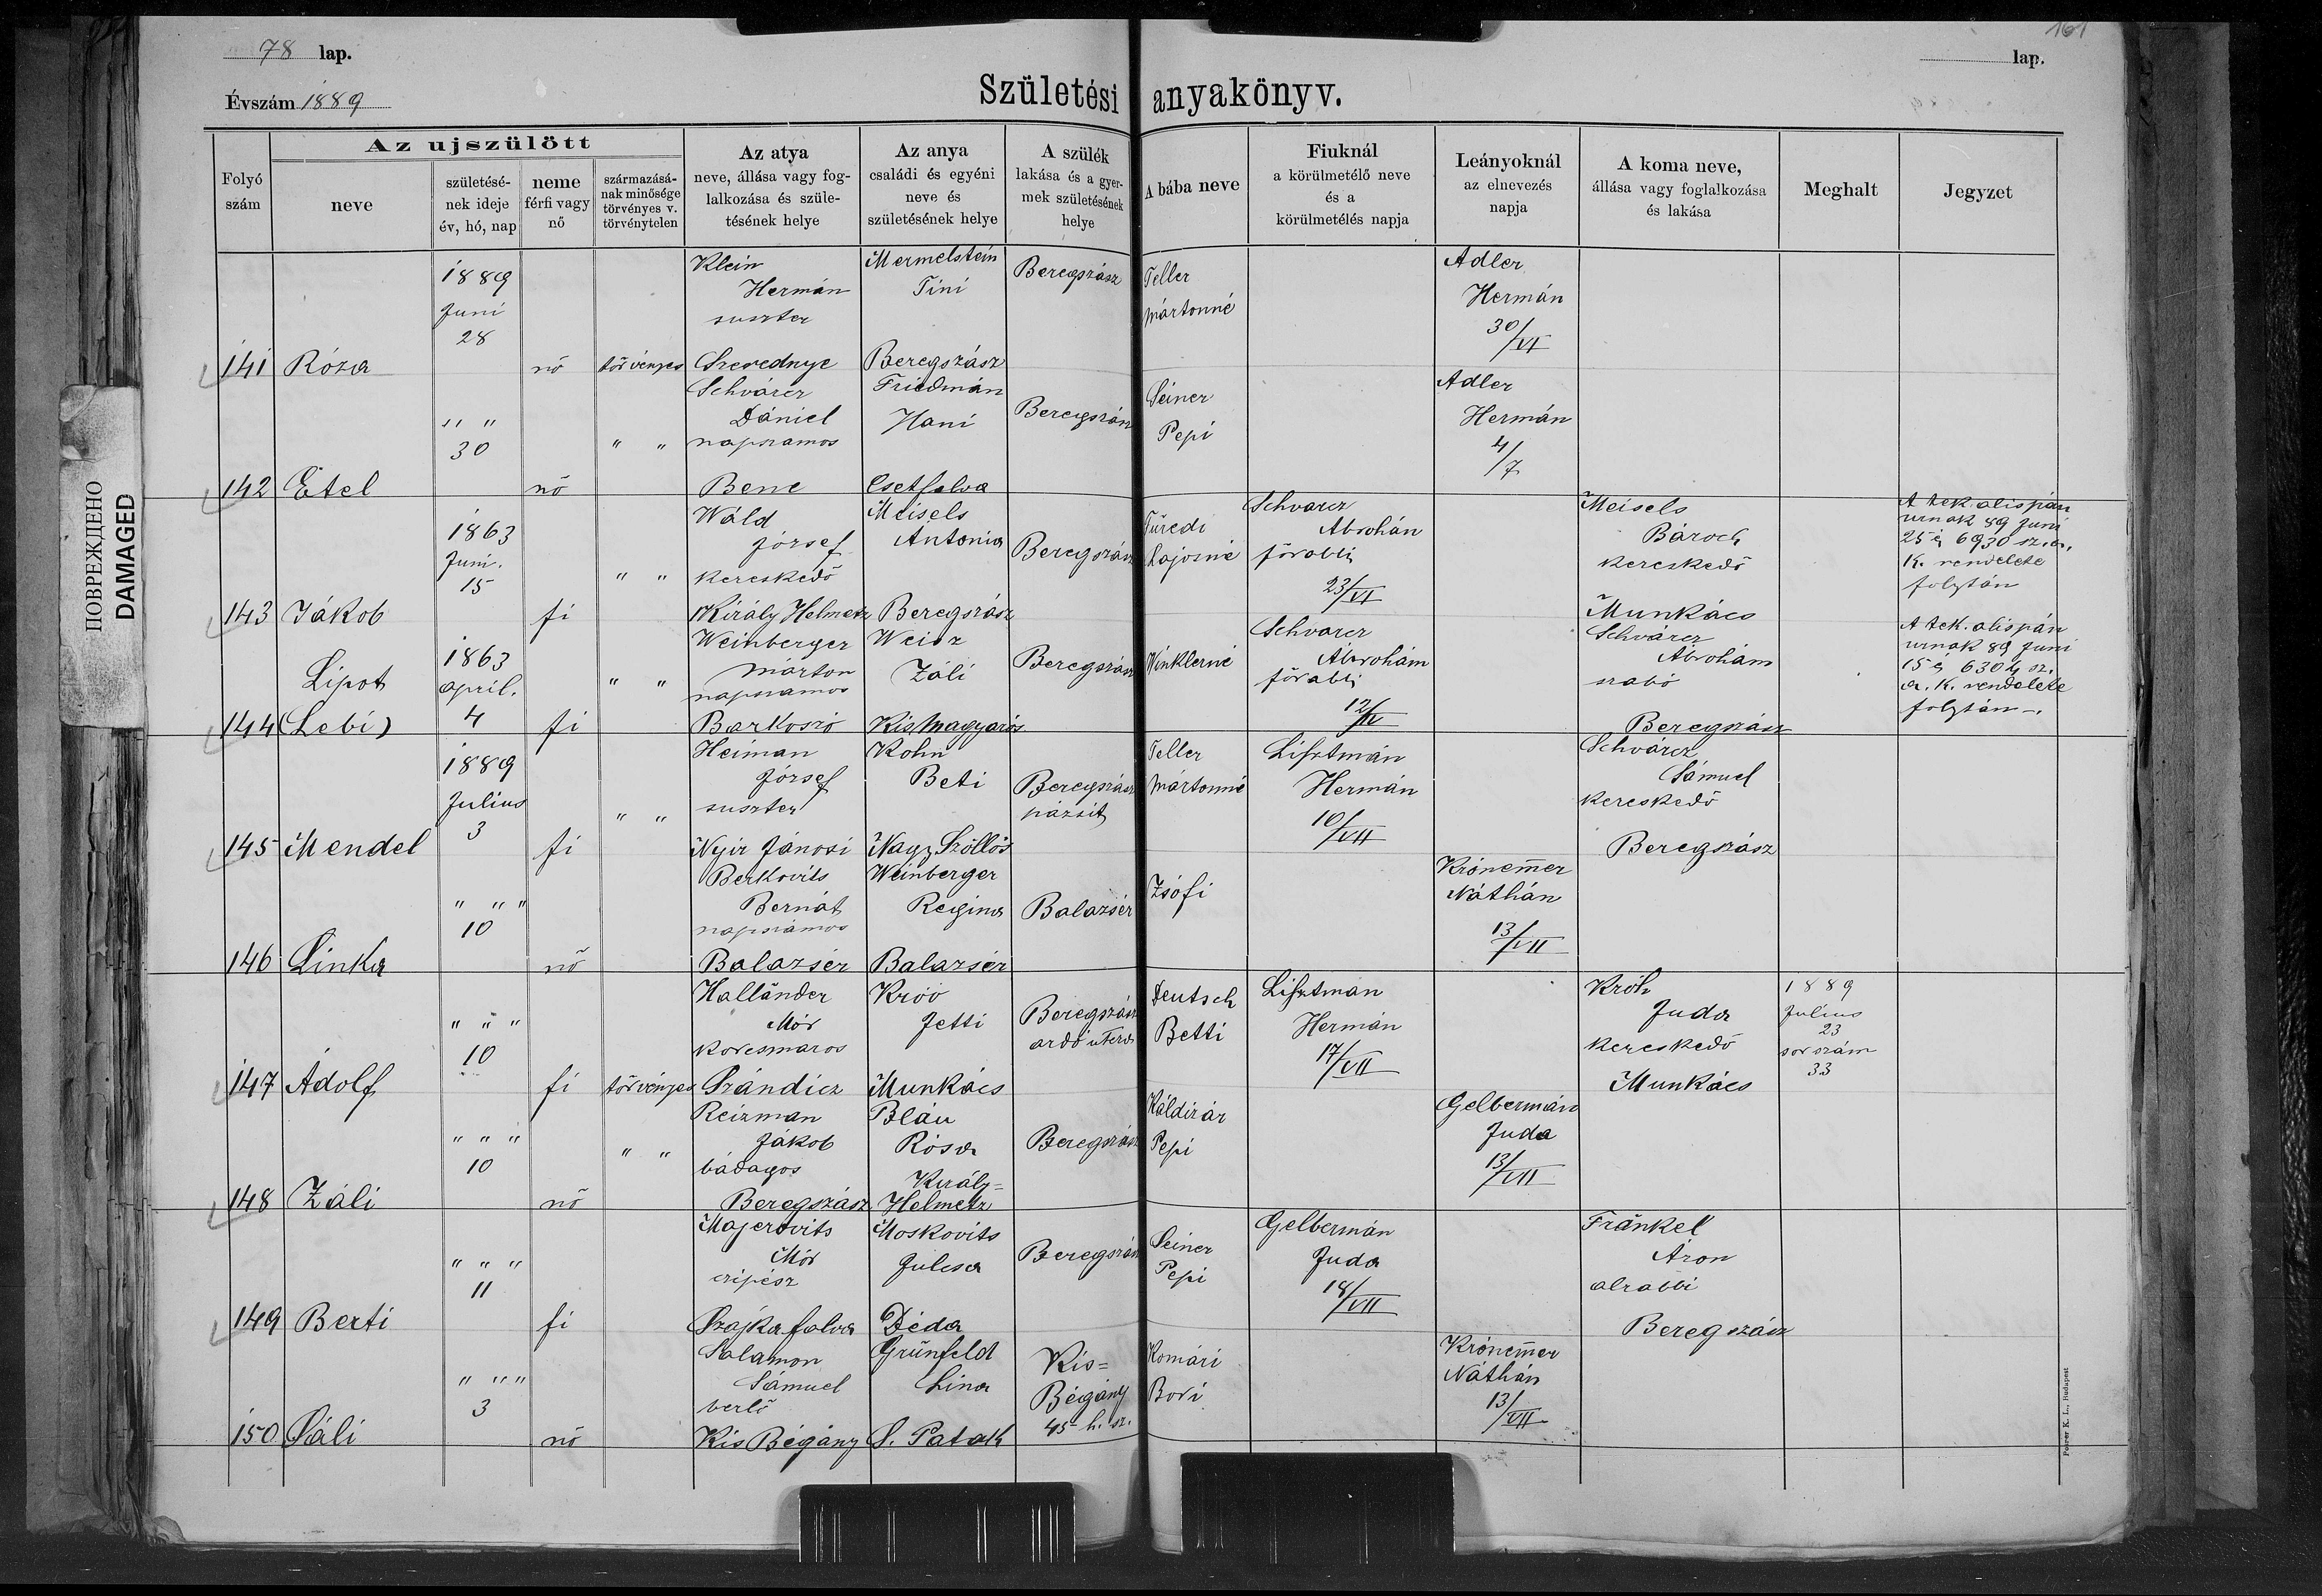 78 lap.
161
lap.
Évszám 1889
Születési anyakönyv.
Folyó szám
Az ujszülött
neve
születésé-nek ideje év, hó, nap
neme férfi vagy nő
származásá-nak minősége törvényes v. törvénytelen
Az atya neve, állása vagy fog-lalkozása és szüle-tésének helye
Az anya családi és egyéni neve és születésének helye
A szülék lakása és a gyer-mek születésének helye
A bába neve
Fiuknál a körülmetélő neve és a körülmetélés napja
Leányoknál az elnevezés napja
A koma neve, állása vagy foglalkozása és lakása
Meghalt
Jegyzet
141 Róza 1889 Juni 28 nő törvényes Klein Hermán suszter Szerednye Mermelstein Tini Beregszász Beregszász Teller Mártonné Adler Hermán 30/VI
142 Etel " " 30 nő " " Schvárcz Dániel napszamos Bene Friedmán Hani Csetfalva Beregszász Seiner Pepi Adler Hermán 4/7
143 Jákob 1863 Juni. 15 fi " " Wáld József kereskedő Király Helmetz Meisels Antonia Beregszász Beregszász Füredi Lajosné Schvarcz Abrohán főrabbi 23/VI Meisels Bároch kereskedő Munkács A tek alispán urnak 89 Juni 25 és 6930 sz. a. K. rendelete folytán
144 Lipot (Lebi) 1863 april. 4 fi " " Weinberger Márton napszamos Barkoszó Weisz Záli Kis Magyarós Beregszász Winklerné Schvarcz Ábrohám főrabbi 12/IV Schvárcz Ábrohám szabó Beregszász A tek. alispán urnak 89 Juni 15 és 6304 sz. a. K. rendelete folytán -.
145 Mendel 1889 Julius 3 fi " " Heiman József suszter Nyir Jánosi Kohn Beti Nagy Szőllős Beregszász pázsit Teller Mártonné Lisztmán Hermán 10/VII Schvárcz Sámuel kereskedő Beregszász
146 Linka " " " 10 nő Berkovits Bernát napszámos Balazsér Weinberger Regina Balazsér Balazsér Zsófi Krónem̄er Náthán 13/VII
147 Adolf " " " 10 fi törvényes Halländer Mór korcsmaros Szándicz Króó Jetti Munkács Beregszász ardó utcza Deutsch Betti Lisztman Hermán 17/VII Króh Juda kereskedő Munkács 1889 Julius 23 sor szám 33
148 Záli " " " 10 nő " " Reizman Jákob bádagos Beregszász Bláu Rósa Király= Helmetz Beregszász Káldirár Pepi Gelbermán Juda 13/VII
149 Berti " " " 11 fi Majerovits Mór czipész Szajkafalva Moskovits Julcsa Déda Beregszász Seiner Pepi Gelbermán Juda 18/VII Fränkel Áron alrabbi Beregszász
150 Sáli " " " 3 nő Salamon Sámuel berlő Kis Bégány Grünfeld Lina S. Patak Kis= Bégány 45 h. sz. Komári Bori Krónem̄er Náthán 13/VII
ПОВРЕЖДЕНО
DAMAGED